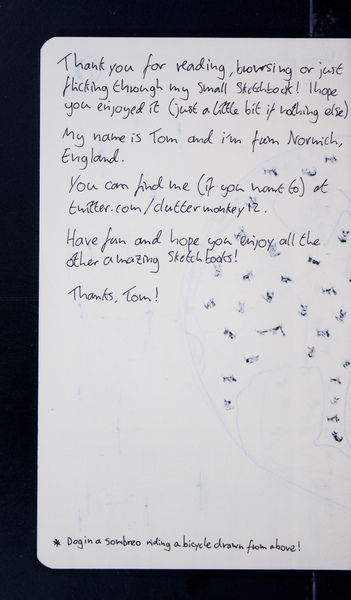 Thank you for reading, browsing or just
flicking through my small Sketchbook! I hope
you enjoyed it (just a little bit if nothing else)
My name is Tom and i'm from Norwich,
England.
You can find me (if you want to) at
twitter.com/cluttermonkey12.
Have fun and hope you enjoy all the
other amazing Sketchbooks!
Thanks, Tom!
* Dog in a sombreo riding a bicycle drawn from above!